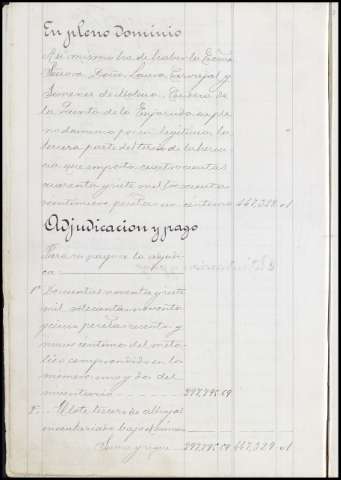 En pleno dominio
Asi mismo ha de haber la Excma
Señora Doña Laura Carvajal y
Jimenez de Molina, Condesa de
la Quinta de la Enjarada en ple-
no dominio por su legitima la
tercera parte del tercio de la heren-
cia que importa cuatrocientas
cuarenta y siete mil trescientas
veintinueve pesetas un centimo 447,329 01
Adjudicacion y pago
Para su pago se la adjudi-
ca
1º Doscientas noventa y siete
mil setecientas noventa y
pesetas sesenta y
nueve centimos del metá-
lico comprendido en los
números uno y dos del
inventario 297,795 69
2º El lote tercero de alhajas
inventariado bajo el núme-
Suma y sigue 297,795 69 447,329 01